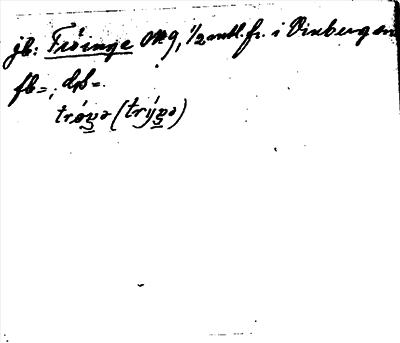 jb: Tröinge Nr 9, 1/2 mtl. fr. i Vinberg sn
fb=; dpb=.
trøŋə (trýŋə)